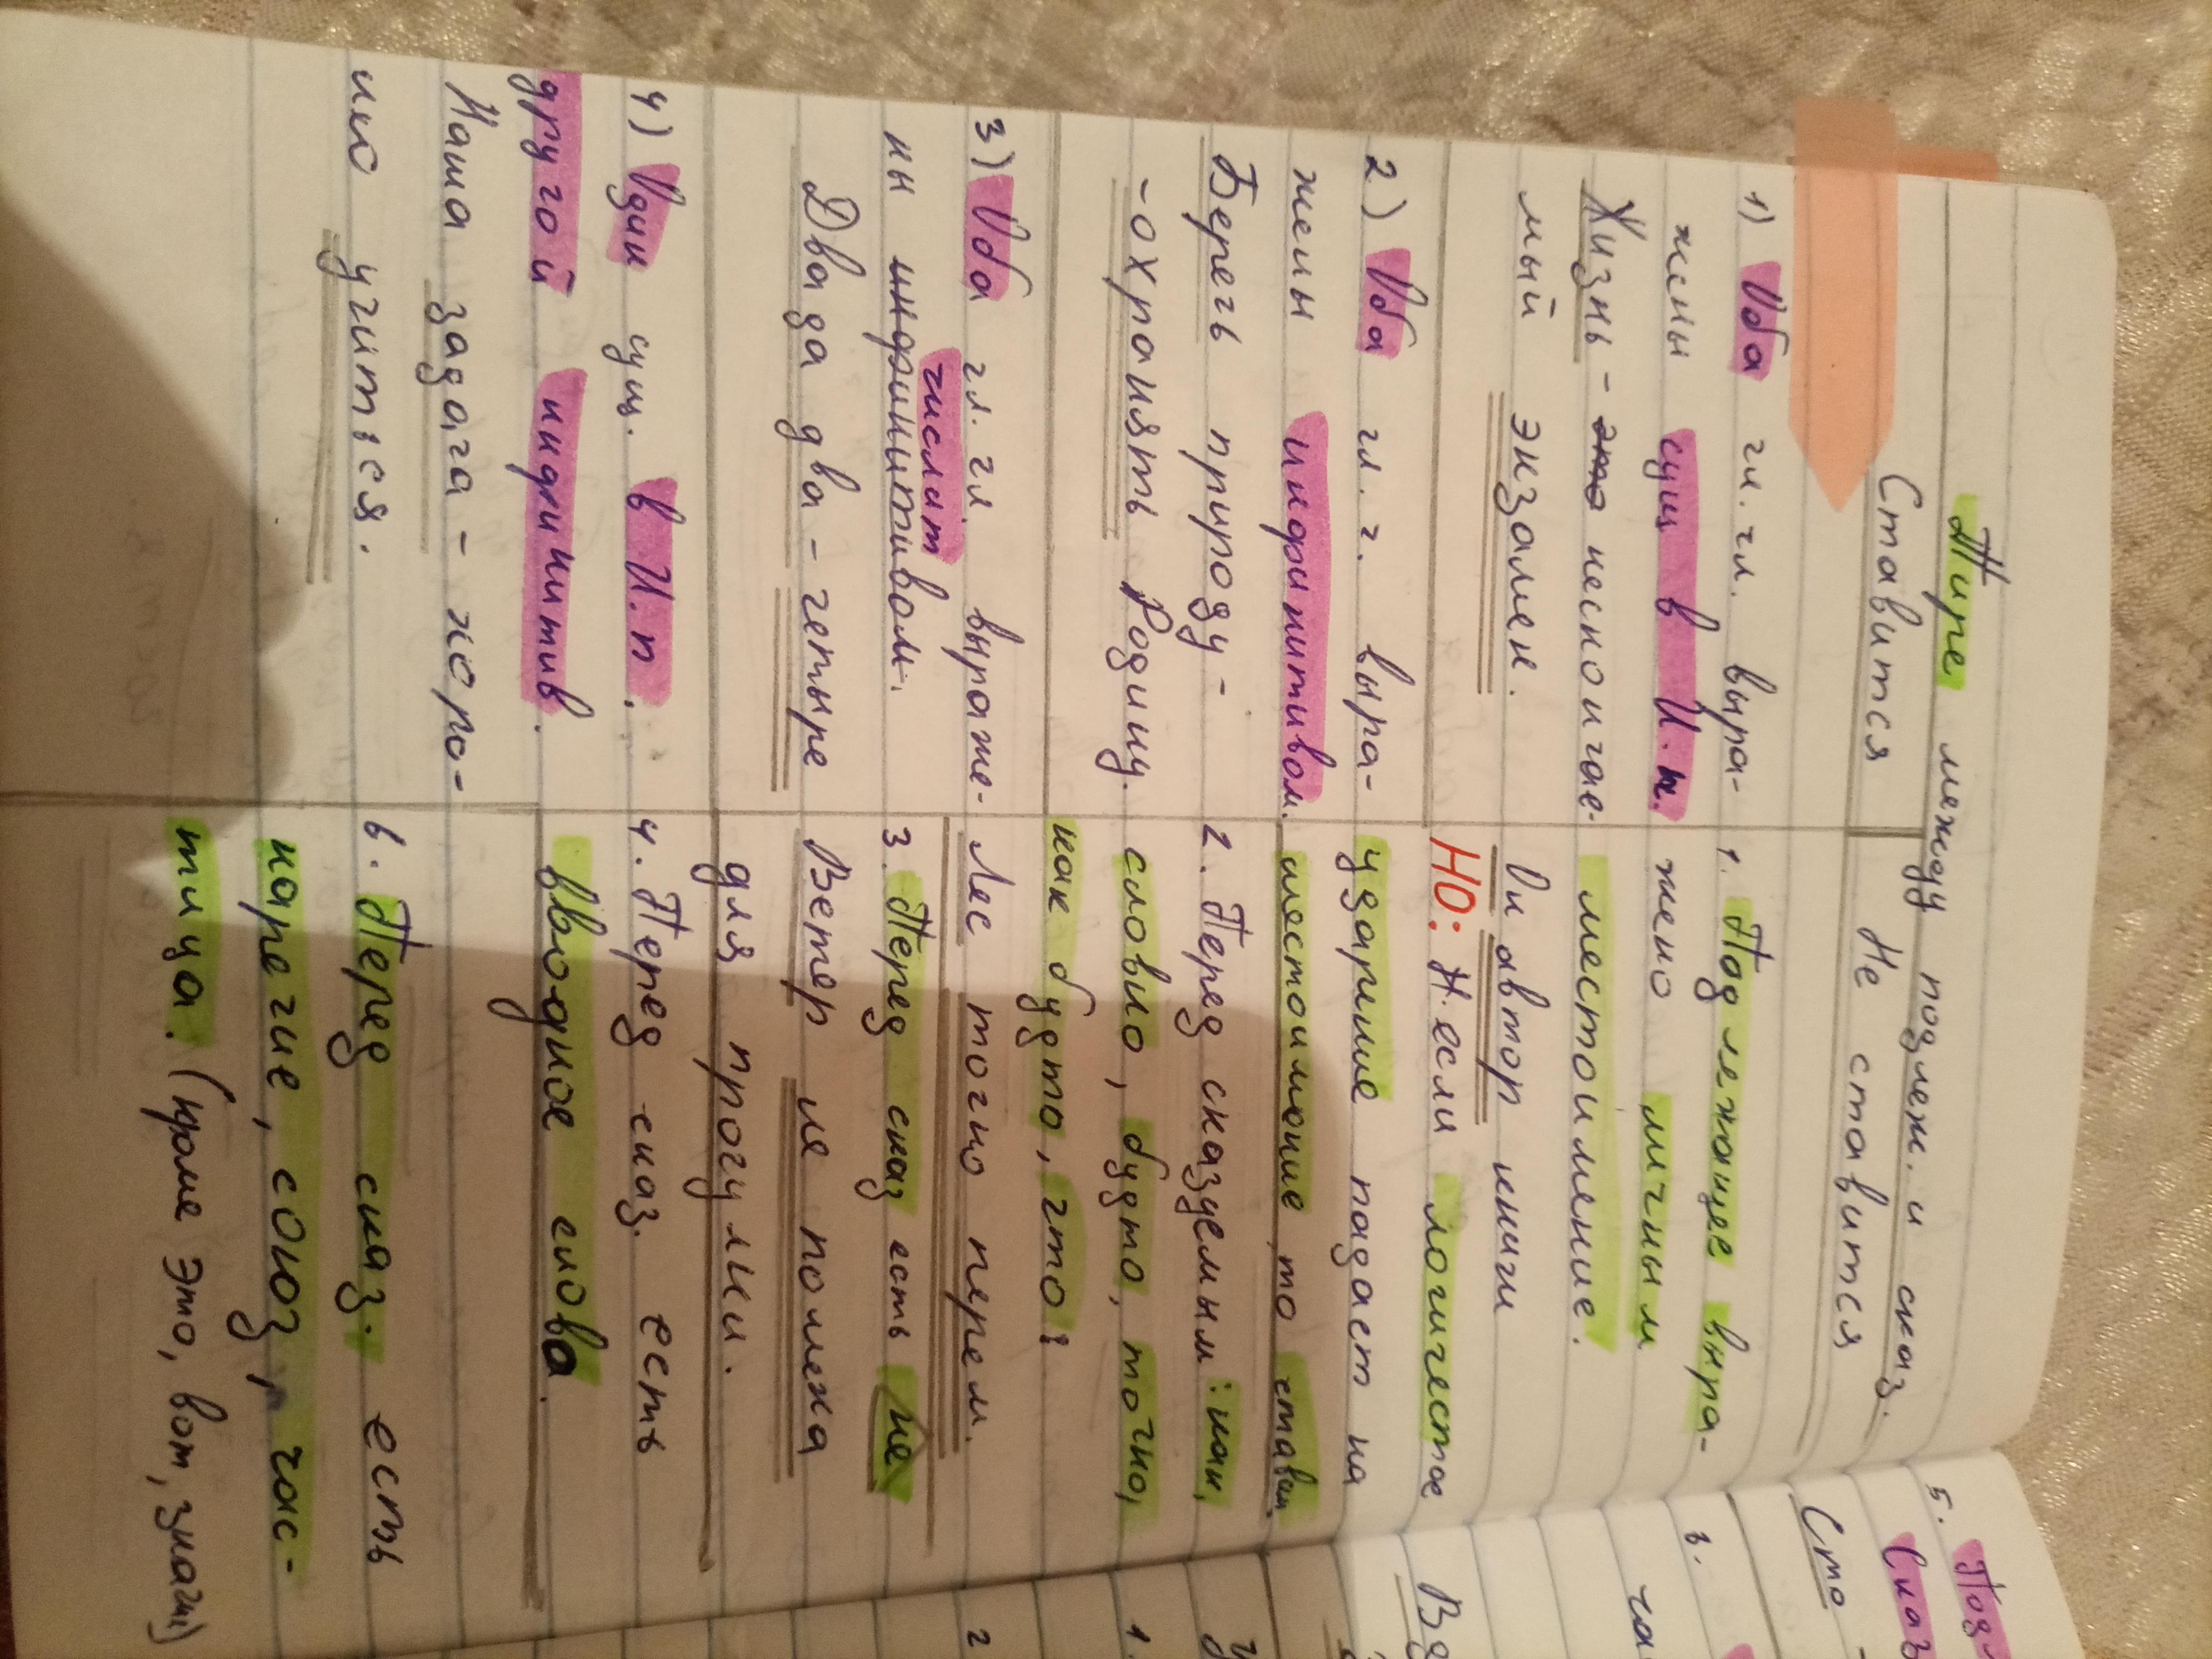 Тире между подлеж. и сказ.
Ставится
1) Оба гл. чл. выра-
жены сущ в И.п.
Жизнь - это нескончае-
мый экзамен.
2) Оба гл. ч. выра-
жены инфинитивом.
Беречь природу -
- охранять Родину.
3) Оба гл. гл. выраже-
числит
ны инфинитивом.
Дважда два - четыре
4) Один сущ. в И.п.
другой инфинитив.
Наша задача - хоро-
шо учиться.
Не ставится
1. Подлежащее выра-
жено личным
местоимение.
Он автор книги
НО: если логическое
ударние падает на
местоимение, то ставим.
2. Перед сказуемым: как,
словно, будто, точно,
как будто, что:
Лес точно терем.
3. Перед сказ есть не
Ветер не помеха
для прогулки.
4. Перед сказ. есть
вводное слова.
6. Перед сказ. есть
наречие, союз, час-
тица. (кроме это, вот, значит)
5. Под
Сказ
Сто -
3.
ча
Вд
1.
2